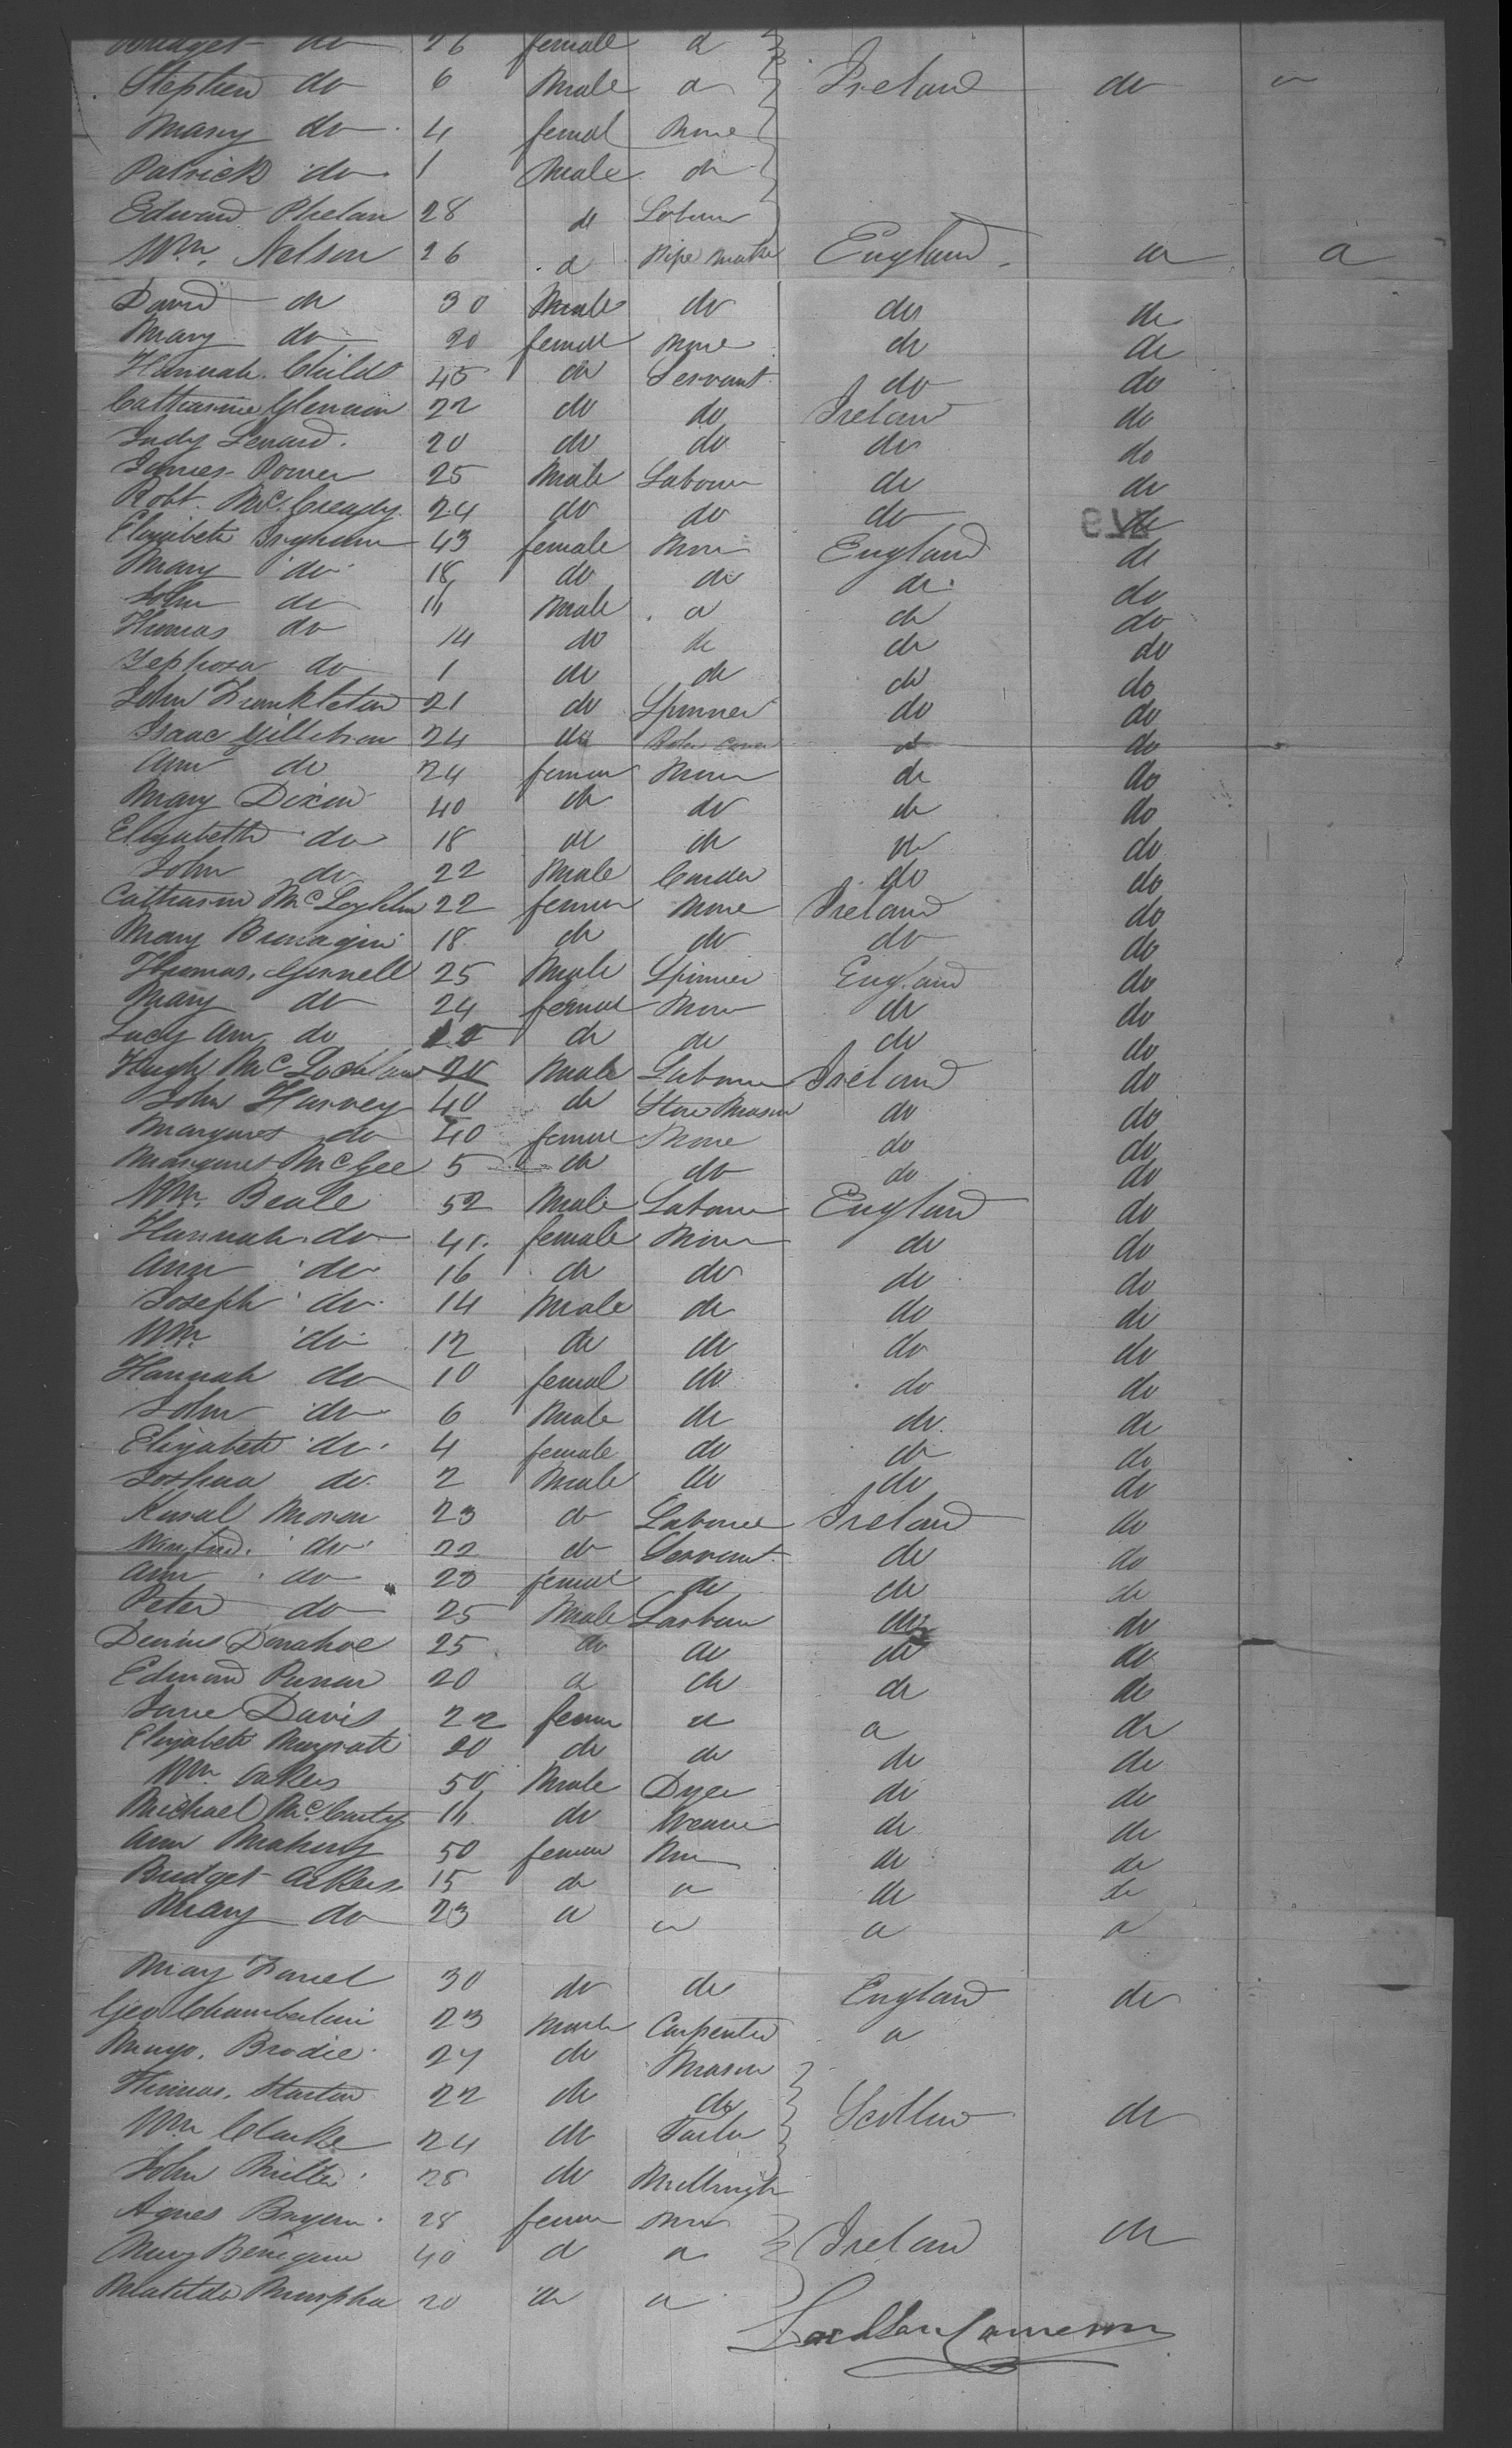 Bridget do 26 female do
Stephen do 6 Male do Ireland do do
Mary do 4 femal None
Patrick do 1 Male do
Edward Phelan 28 do Labour
Wm. Nelson 26 do Pipe Make England do do
David do 30 Male do do do
Mary do 20 female None do do
Hannah Childs 45 do Servant do do
Catharine Glennon 22 do do Ireland do
Judy Lenard 20 do do do do
James Power 25 Male Labour do do
Robt. McCready 24 do do do do
Elizabeth 43 female None England do
Mary do 18 do do do do
John do 11 Male do do do
Thomas do 14 do do do do
do 1 do do do do
John Frankleton 21 do Spinner do do
Isaac 24 do do do
Ann do 24 female None do do
Mary Dixon 40 do do do do
Elizabeth do 18 do do do do
John do 22 Male Carder do do
Catharine McLoghlin 22 female None Ireland do
Mary 18 do do do do
Thomas Gunnell 25 Male Spinner England do
Mary do 24 female None do do
Lucy Ann do do do do do
Hugh McLochlan 20 Male Labour Ireland do
John Harvey 40 do Stone Mason do do
Margaret do 40 female None do do
Margaret McGee 5 do do do do
Wm. Beale 52 Male Labour England do
Hannah do 41 female None do do
Ann do 16 do do do do
Joseph do 14 Male do do do
Wm do 12 do do do do
Hannah do 10 femal do do do
John do 6 Male do do do
Elizabeth do 4 female do do do
Joshua do 2 Male do do do
Moran 23 do Labour Ireland do
do 22 do Servant do do
Ann do 23 female do do do
Peter do 25 Male Labour do do
Dennis Donahoe 25 do do do do
Edmond 20 do do do do
Jane Davis 22 female do do do
Elizabeth 20 do do do do
Wm Ackers 50 Male Dyer do do
Michael McCarty 11 do Weaver do do
Ann Mahony 50 female None do do
Bridget Ackers 15 do do do do
Mary do 23 do do do do
Mary 30 do do England do
Geo Chamberlain 23 Male Carpenter do
Brodie 27 do Mason
Thomas 22 do do Scotland do
Wm Clarke 24 do Tailor
John Miller 28 do Millwright
Agnes 28 female None Ireland do
Mary 40 do do
Matilda Murpha 20 do do
Cameron